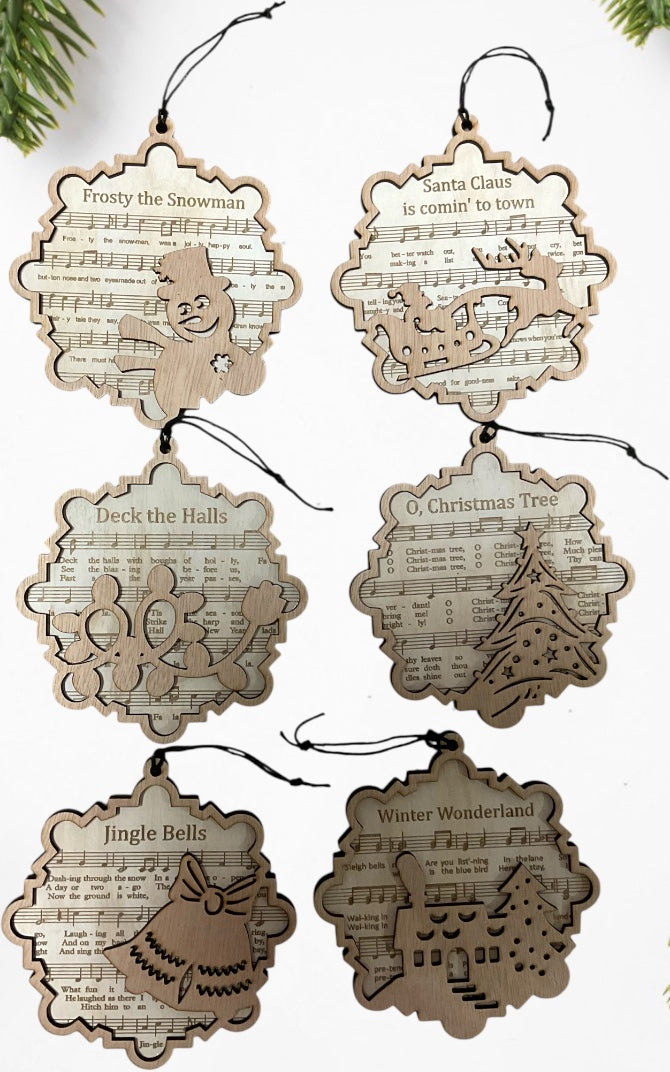 Frosty the Snowman
Fros - ty the snow-man, was a jol - ly, hap-py soul,
but-ton nose and two eyes made out of
- ty the
they say,
There must
Santa Claus
is comin' to town
You bet - ter watch out, cry, bet
mak-ing a list twice, gon
tell - ing you
knows when you're
for good-ness sake
Deck the Halls
Deck the halls with boughs of hol - ly, Fa
See the blaz - ing be - fore us,
Fast year pas - ses,
'Tis sea - son
Strike harp and
Hail New Year
la.
Fa la
O, Christmas Tree
O Christ-mas tree, O Christ- tree, How
O Christ-mas tree, O Christ- Much plea
O Christ-mas tree, O Christ- Thy can
ver - dant! O Christ- Christ-
bring me! O Christ- Christ-
bright - ly! O Christ- Christ-
thy leaves so
sure doth thou
dles shine out
Jingle Bells
Dash-ing through the snow In a o -
A day or two a - go The
Now the ground is white,
go, Laugh - ing all ring,
And on my by,
And sing bay,
What fun it
He laughed as there I
Hitch him to an o
Jin-gle
Winter Wonderland
Sleigh bells Are you list'-ning In the lane
is the blue bird Here stay,
Wal-king in land
Wal-king in
pre-ten
pre-